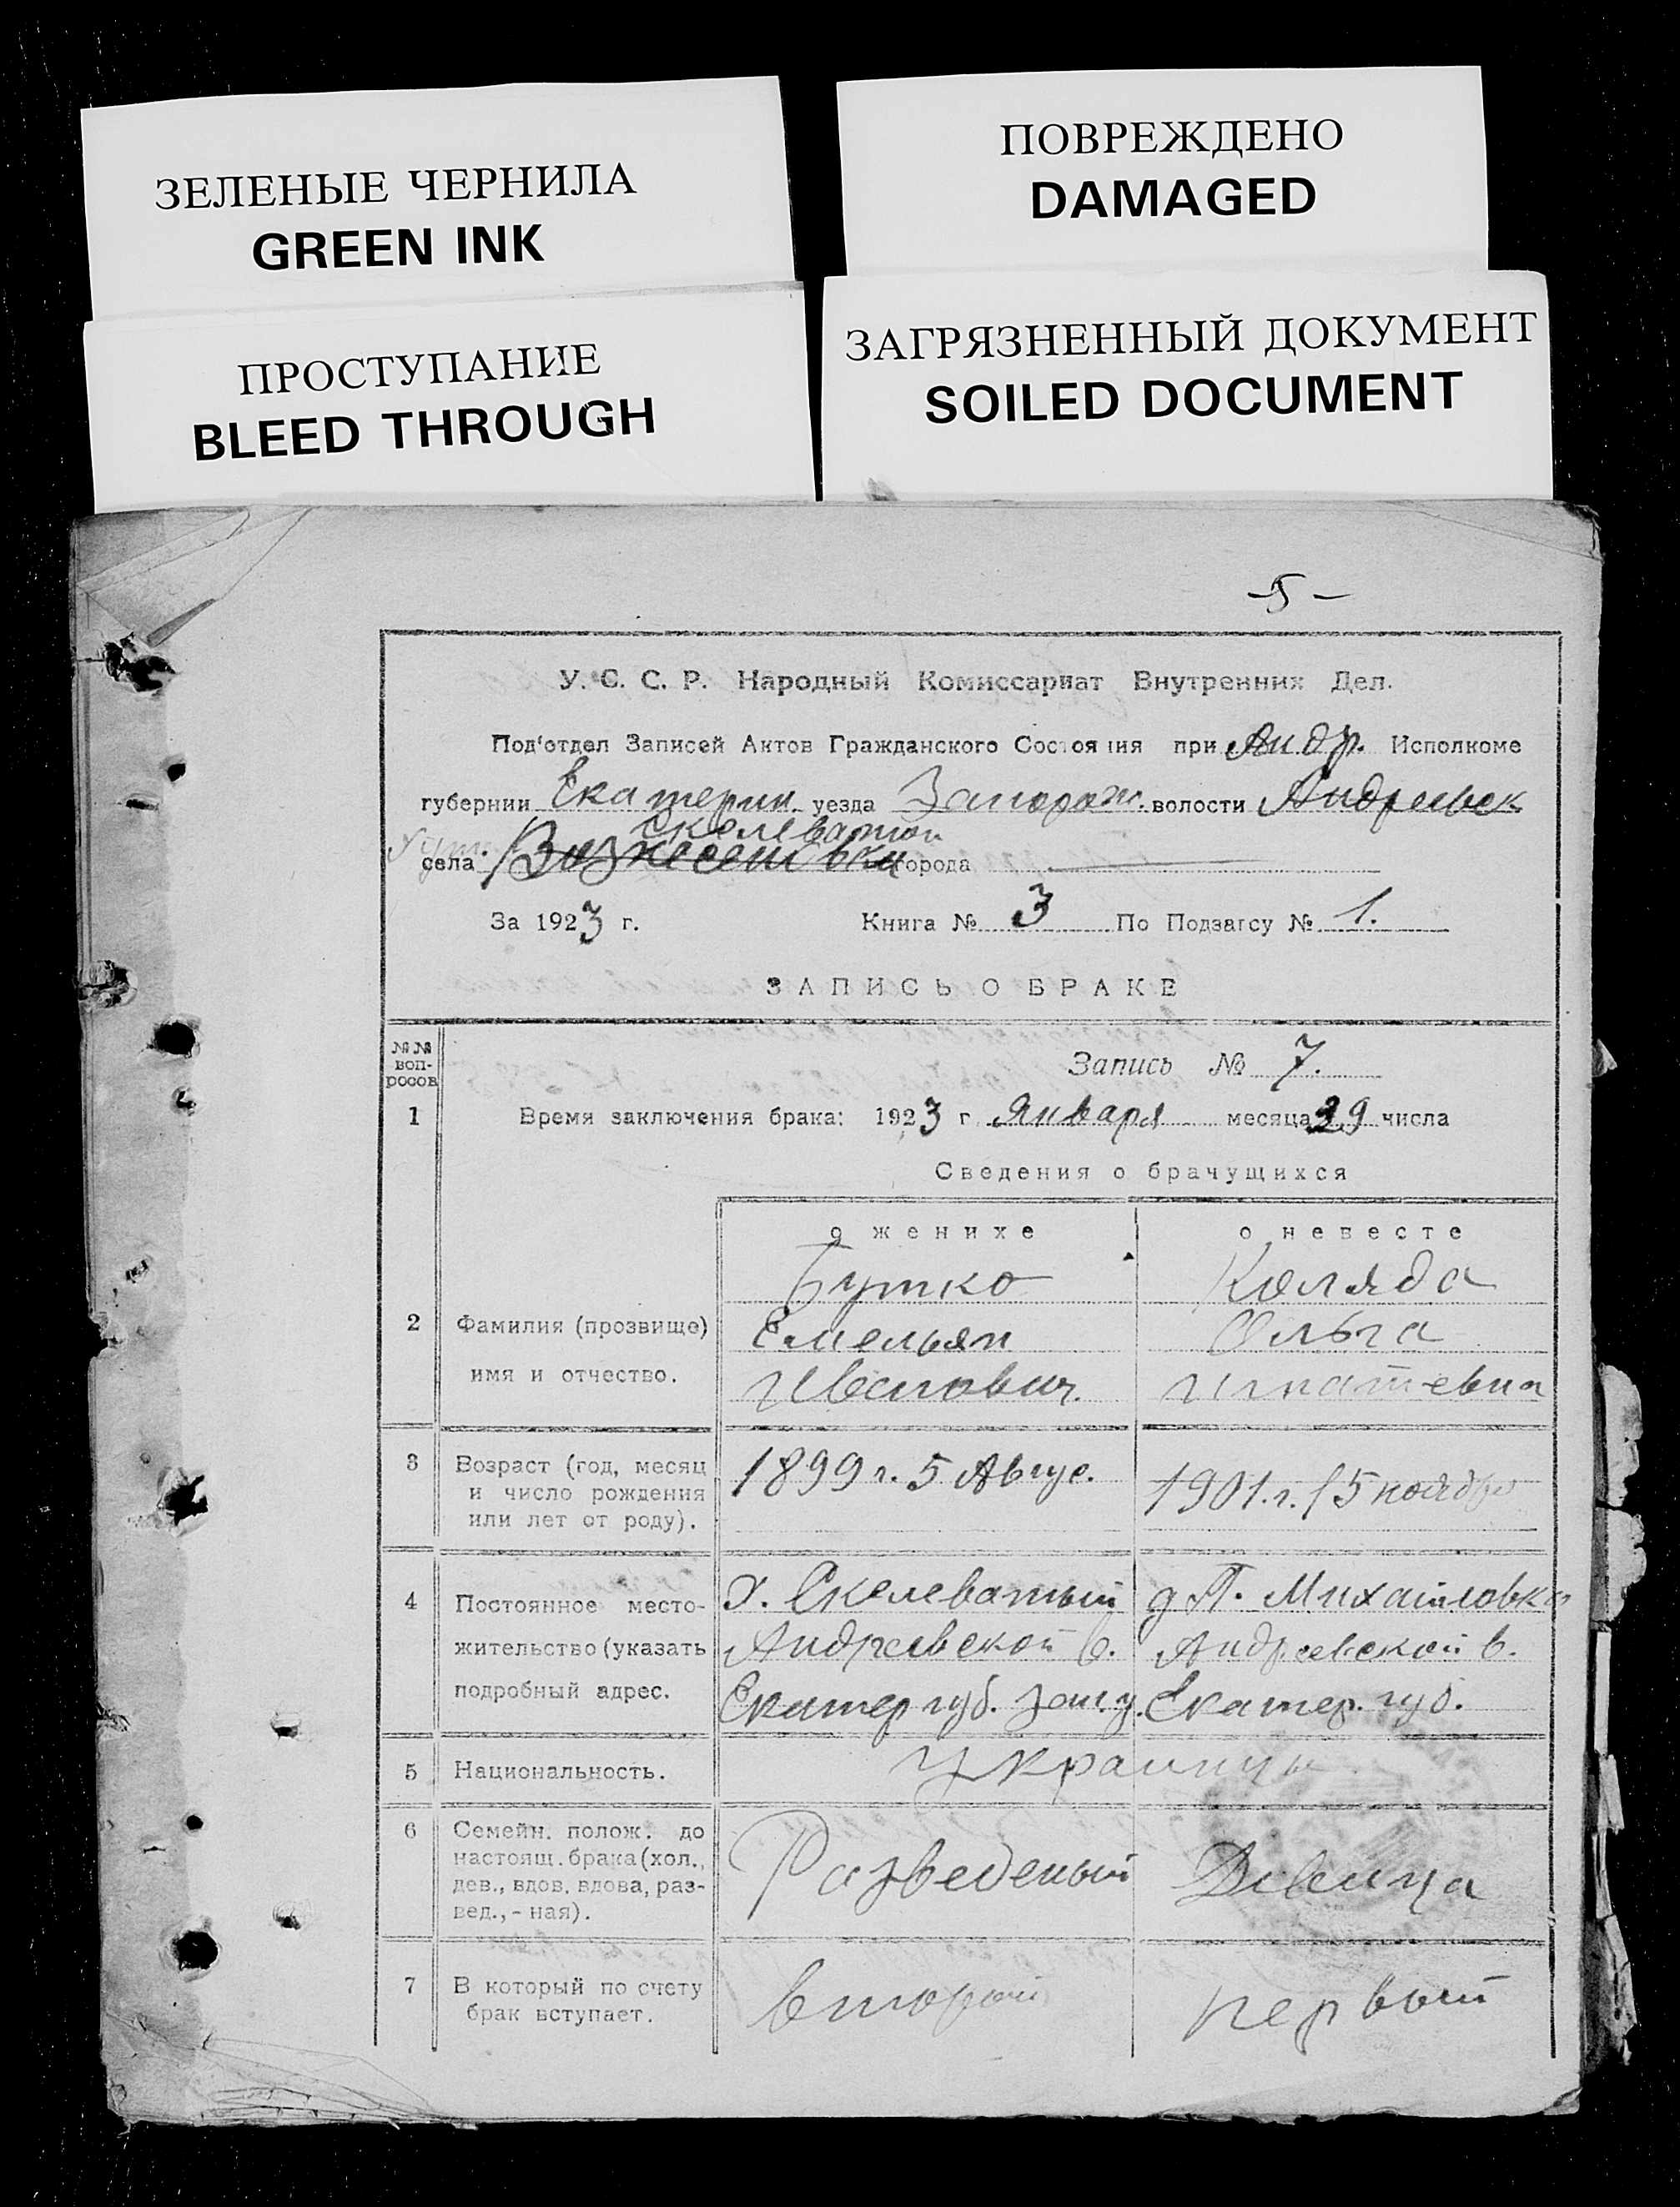 ЗЕЛЕНЫЕ ЧЕРНИЛА
GREEN INK
ПОВРЕЖДЕНО
DAMAGED
ПРОСТУПАНИЕ
BLEED THROUGH
ЗАГРЯЗНЕННЫЙ ДОКУМЕНТ
SOILED DOCUMENT
- 5 -
У. С. С. Р. Народный Комиссариат Внутренних Дел.
Под'отдел Записей Актов Гражданского Состояния при Андр. Исполкоме
губернии Екатерин. уезда Запорож. волости Андреевск
Скелеватой
села Вознесеновки города
За 1923 г. Книга № 3 По Подзагсу № 1.
ЗАПИСЬ О БРАКЕ
№№ воп-
росов
Запись № 7.
1 Время заключения брака: 1923 г. Января месяца 29 числа
Сведения о брачущихся
о женихе о невесте
Бутко Коляда
2 Фамилия (прозвище) Емельян Ольга
имя и отчество. Иванович. Игнатевна
3 Возраст (год, месяц 1899 г. 5 Авгус. 1901. г. 15 ноября
и число рождения
или лет от роду).
4 Постоянное место- Х. Скелеватый д П. Михайловка
жительство (указать Андреевской в. Андреевской в.
подробный адрес. Екатер губ. Зап. у. Екатер. губ.
5 Национальность. Украинцы
6 Семейн. полож. до
настоящ. брака (хол., Разведеный Девица
дев., вдов, вдова, раз-
вед., - ная).
7 В который по счету второй первый
брак вступает.